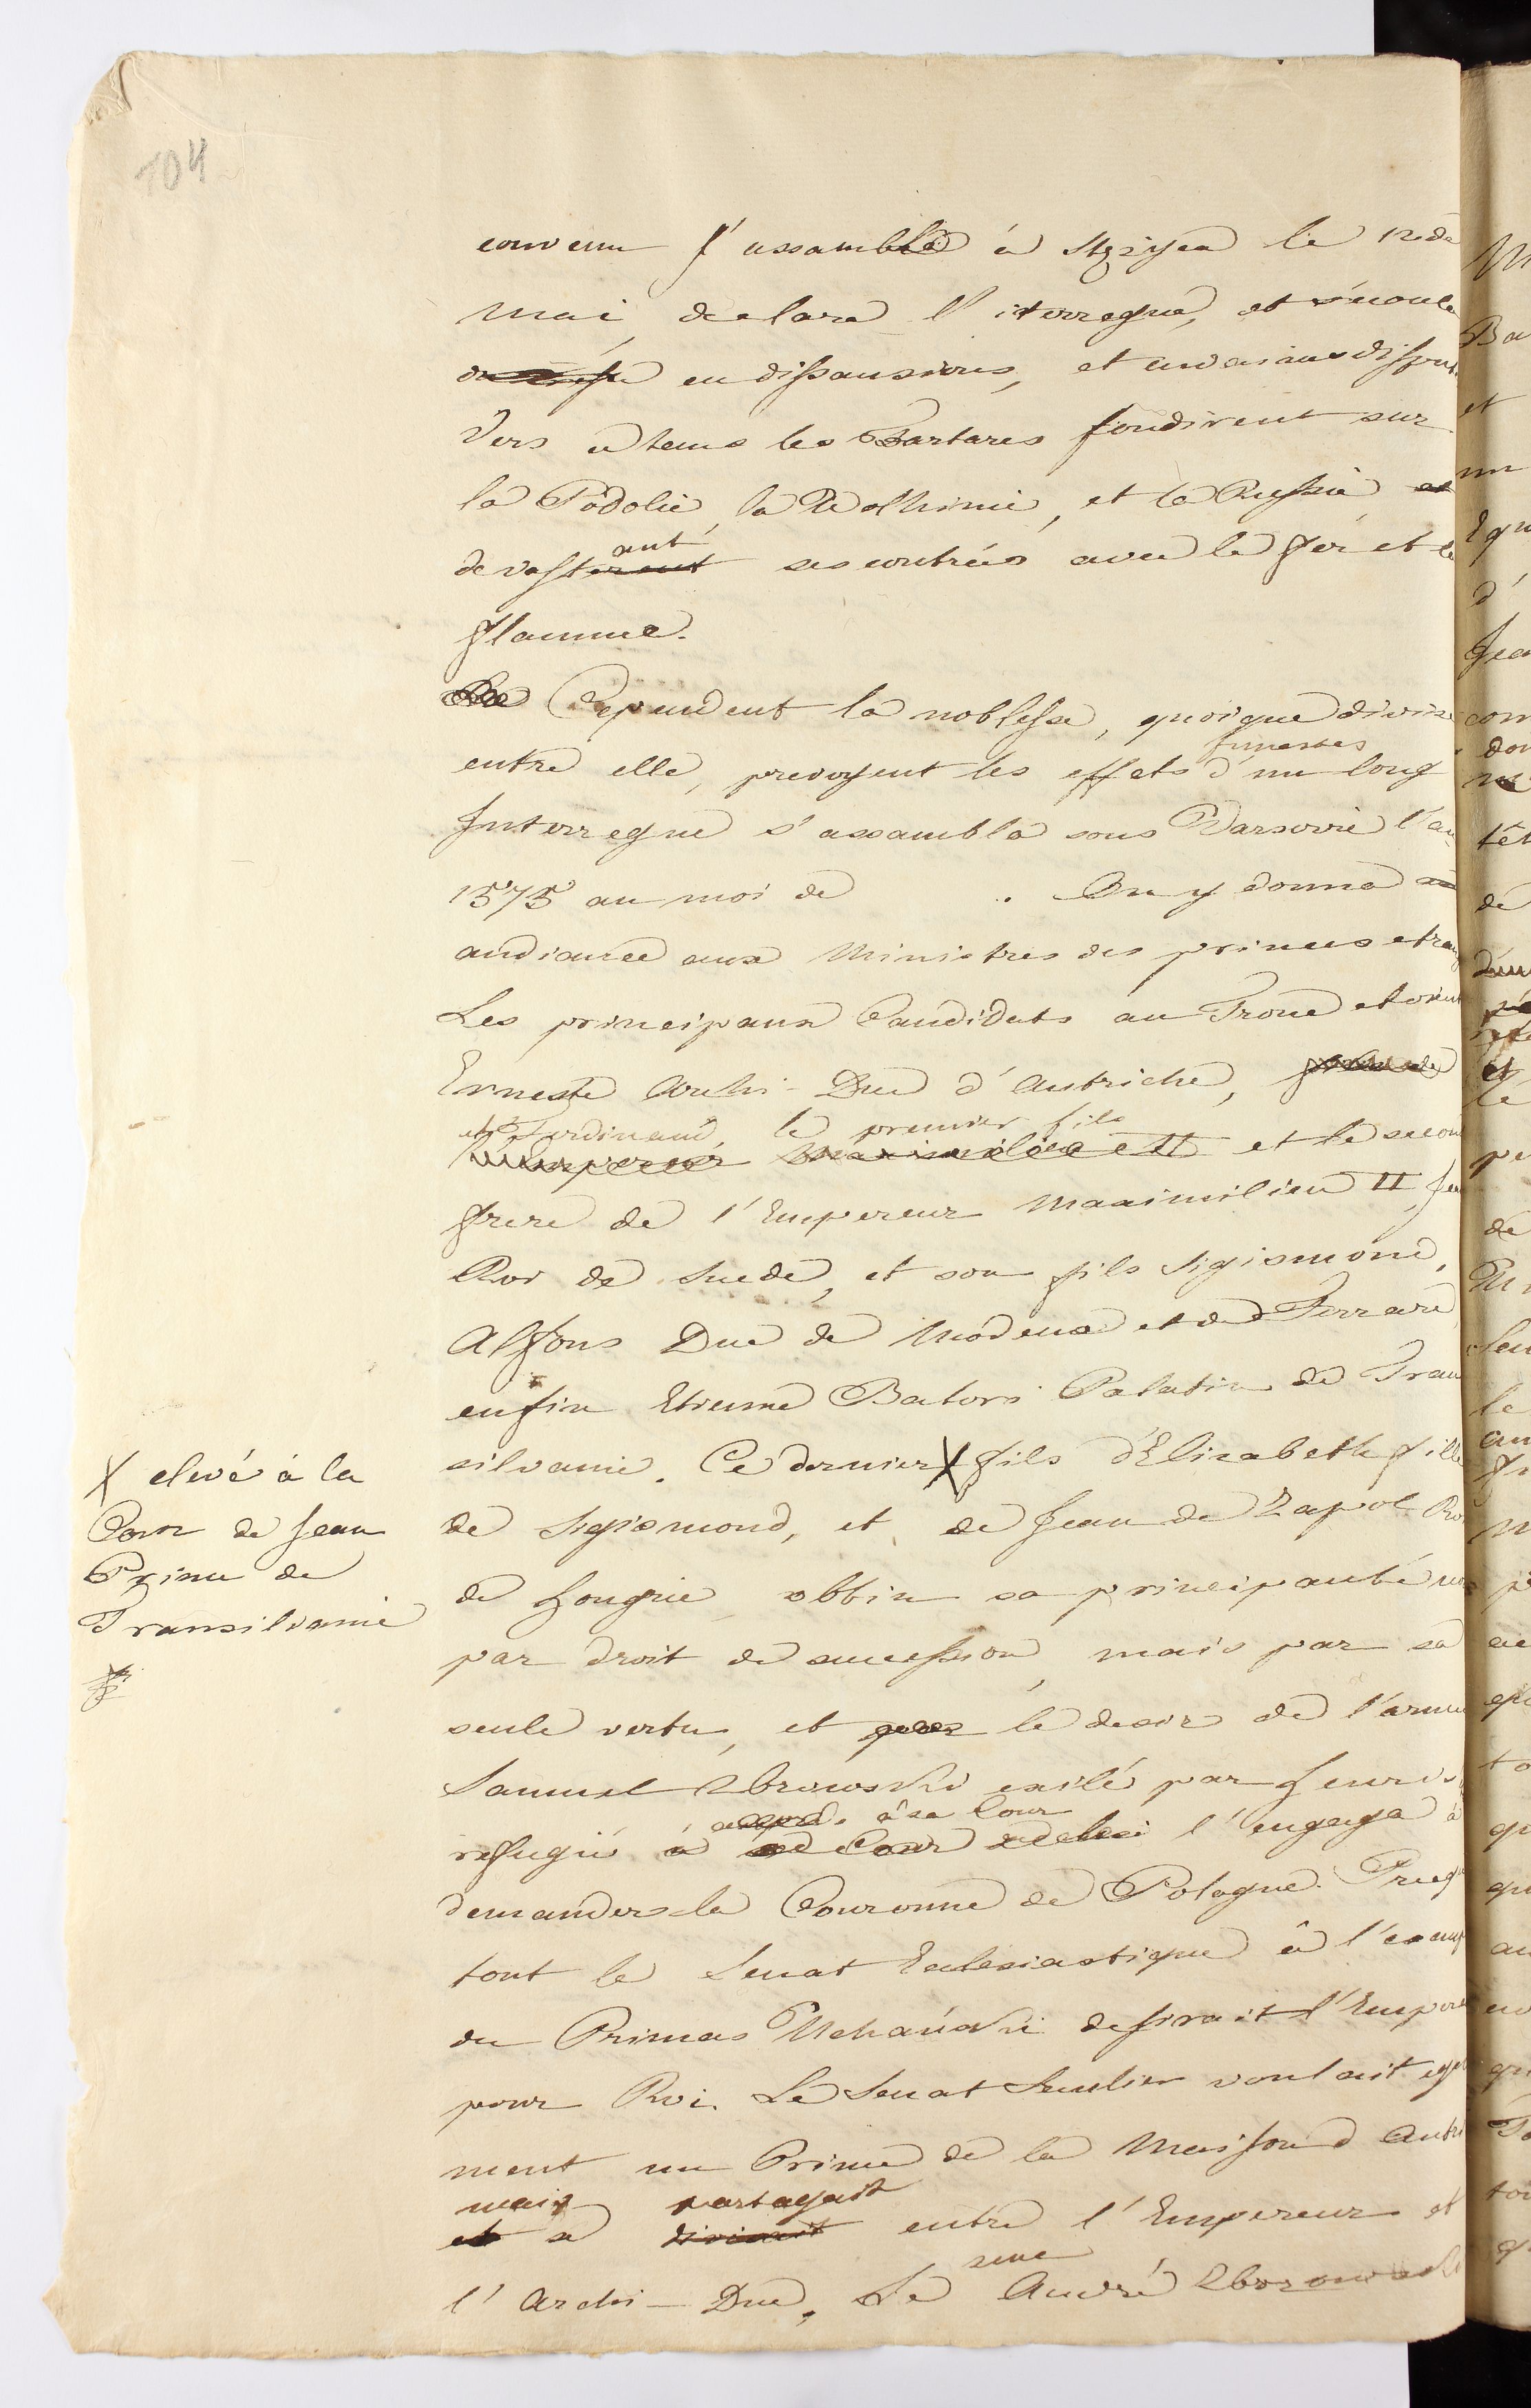 104
convenu s'assambla à Stezyca le 12 de
Mai declara l'iterregne, et s'ecoula
en dissansions, et en vaines disput
Vers ce tems les Tartares fondirent sur
la Podolie, la Wolhinie, et la Russie et
ant
devasterent ses contrées avec le fer et la
flamme.
Cependent la noblesse, quoique divise
funestes
entre elle, prevoyent les effets d'un long
Interregne s'assambla sous Varsovie l'an
1575 au moi de . On y donna
audiance aux Ministres des princes etran
Les principaux Candidats au Trone etoient
Erneste Archi-Duc d'Autriche,
et Ferdinand, le premier fils
l'Empereur Maximilien II et le secon
frere de l'Empereur Maximilien II, Jea
Roi de Suede, et son fils Sigismond,
Alfons Duc de Modene et de Ferrare
enfin Etienne Batori Palatin de Tran
silvanie. Ce dernier X fils d'Elisabeth fille
de Sigismond, et de Jean de Zapol Roi
de Hongrie obtin sa principauté non
par droit de sucession, mais par sa
seule vertu, et par le desir de l'armée
Samuel Zborowski exilé par Henri,
à sa Cour
refugié à sa Cour l'engaga à
demander la Couronne de Pologne. Presq
tout le Senat Eclesiastique à l'exemp
du Primas Uchański desirait l'Empere
pour Roi. Le Senat Seculier voulait egal
ment un Prince de la Maison d'Autri
mais partagait
et se divisait entre l'Empereur et
seul
l'Archi-Duc. Le André Zborowski
X elevé à la
Cour de Jean
Prince de
Transilvanie